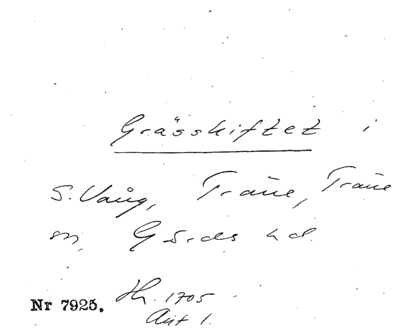 Grässkiftet i
S. Vång, Träne, Träne
sn, Gärds hd.
Nr 7925. Hh. 1705
Ant 1.